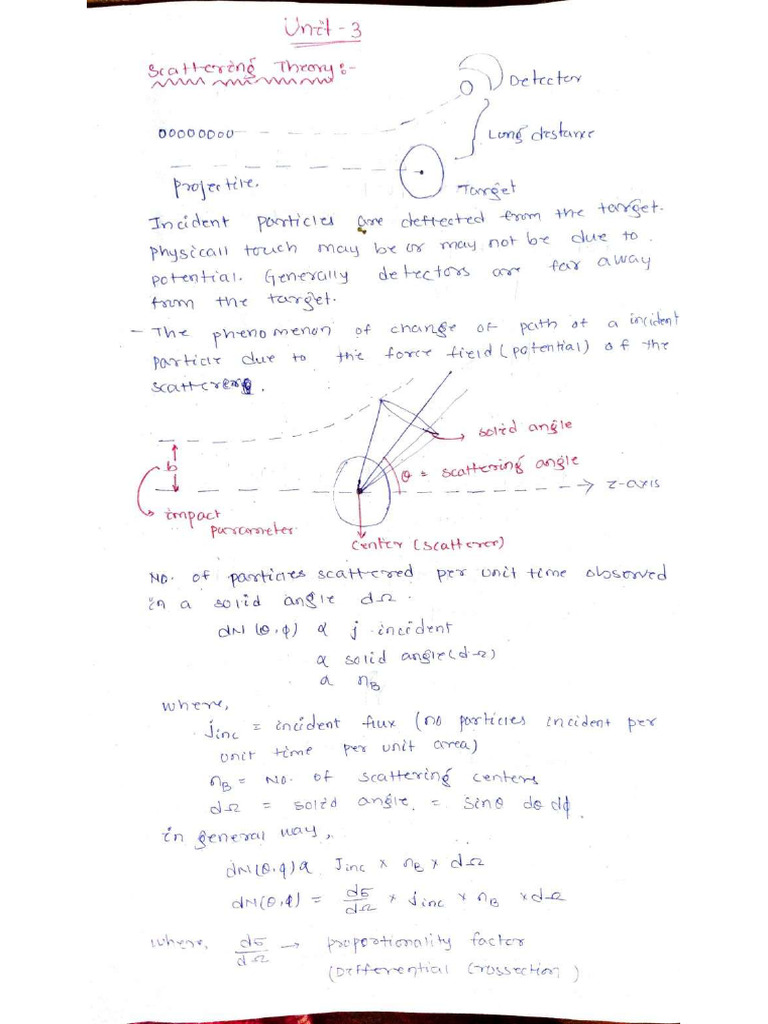 Unit - 3
Scattering Theory:-
Detector
Long distance
Projectile.
Target
Incident particles are deflected from the target.
Physicall touch may be or may not be due to
potential. Generally detectors are far away
from the target.
- The phenomenon of change of path of a incident
particle due to the force field (potential) of the
scatterer.
solid angle
θ = scattering angle
b
z-axis
impact
parameter
center (scatterer)
No. of particles scattered per unit time observed
in a solid angle dΩ.
dN (θ,ϕ) α j incident
α solid angle(dΩ)
α nB
where,
jinc = incident flux (no particles incident per
unit time per unit area)
nB = No. of scattering centers
dΩ = solid angle = sinθ dθ dϕ
in general way,
dN(θ,ϕ) α Jinc × nB × dΩ
dN(θ,ϕ) = dσ/dΩ × jinc × nB × dΩ
where, dσ/dΩ → proportionality factor
(Differential Crossection)